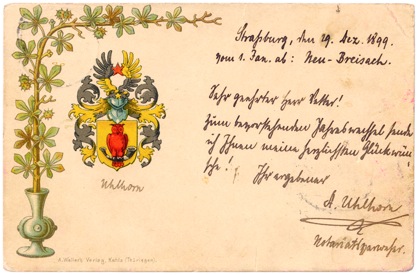 Straßburg, den 29. Dez. 1899.
vom 1. Jan. ab: Neu-Breisach.
Sehr geehrter Herr Vetter!
Zum bevorstehenden Jahreswechsel sende
ich Ihnen meine herzlichsten Glückwün
sche!
Ihr ergebener
A. Uhlhorn
Uhlhorn
A. Wallach Verlag, Kahla (Thüringen).